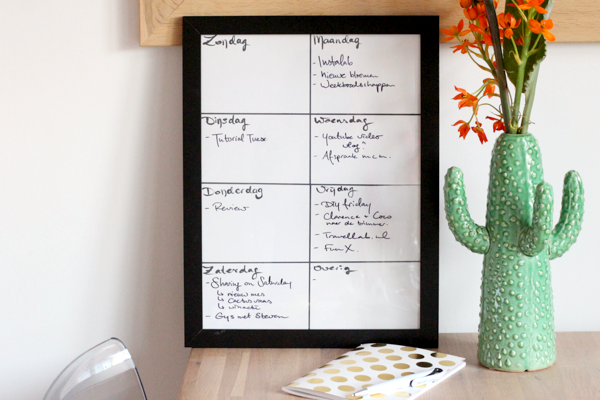 Zondag
Maandag
- Instalab
- nieuwe bloemen
- weekboodschappen
Dinsdag
- Tutorial Tuesd
Woensdag
- Youtube video
vlog?
- Afspraak m.c.m.
Donderdag
- Review
Vrijdag
- DIY friday
- Clarence + Coco
naar de trimmer.
- Travellab.nl
- Fun X.
Zaterdag
- Sharing on Saturday
↳ nieuw huis
↳ Cactusvaas
↳ winactie
- Gys met Steven
Overig
-